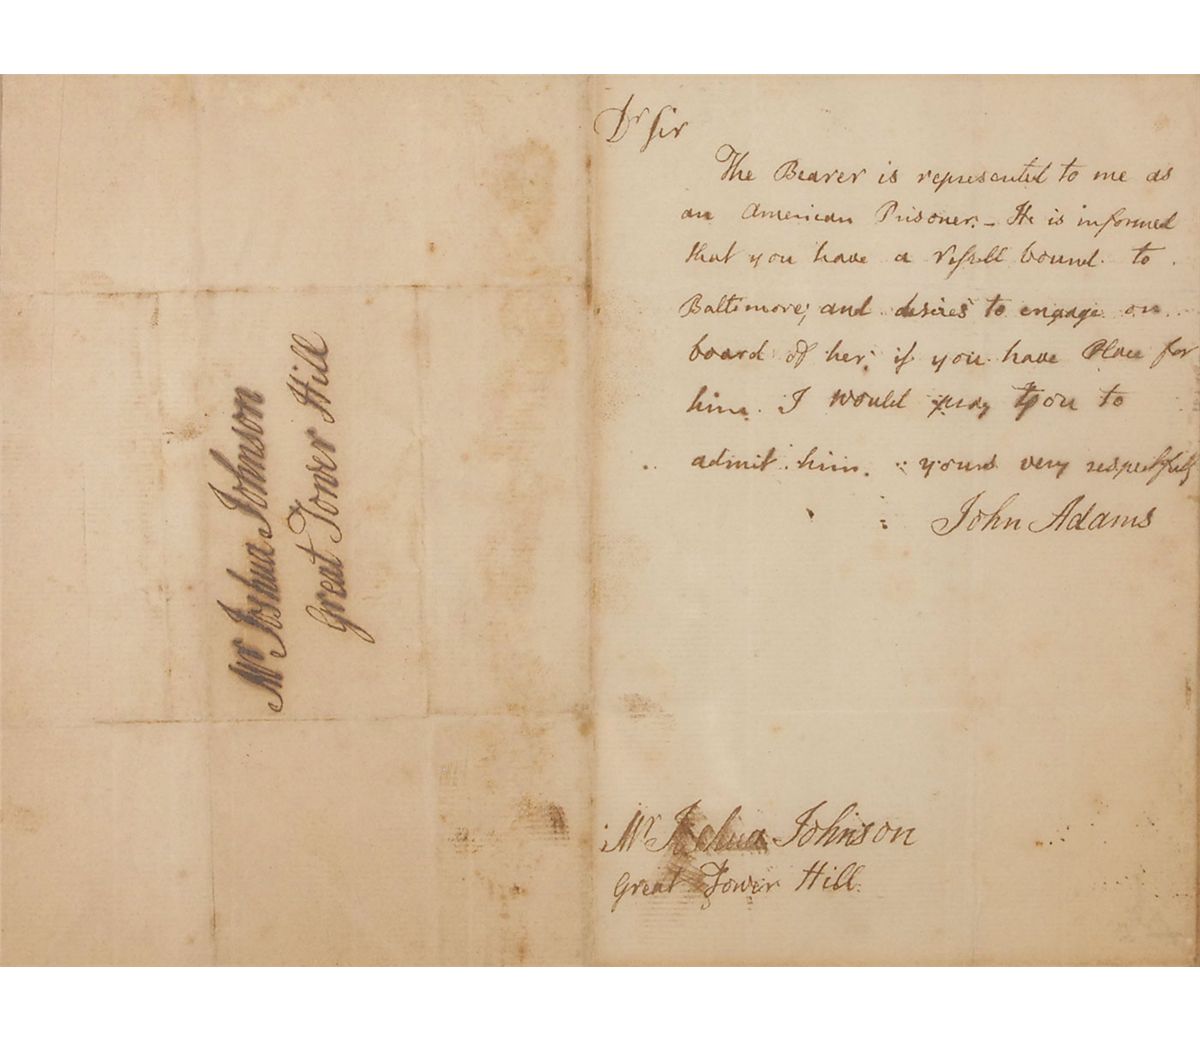 Mr Joshua Johnson
Great Tower Hill
Dr Sir
The Bearer is represented to me as
an American Prisoner. – He is informed
that you have a vessell bound to
Baltimore, and desires to engage on
board of her, if you have Place for
him. I would pray you to
admit him. yours very respectfully
John Adams
Mr Joshua Johnson
Great Tower Hill.